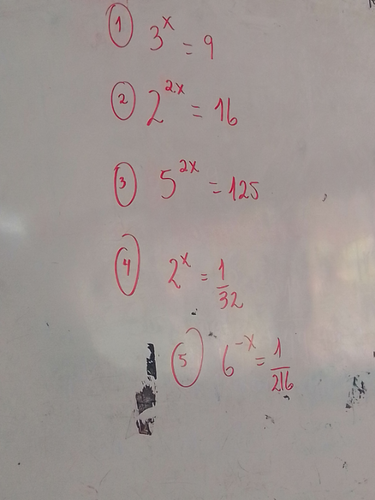 1 3^x = 9
2 2^2x = 16
3 5^2x = 125
4 2^x = 1/32
5 6^-x = 1/216